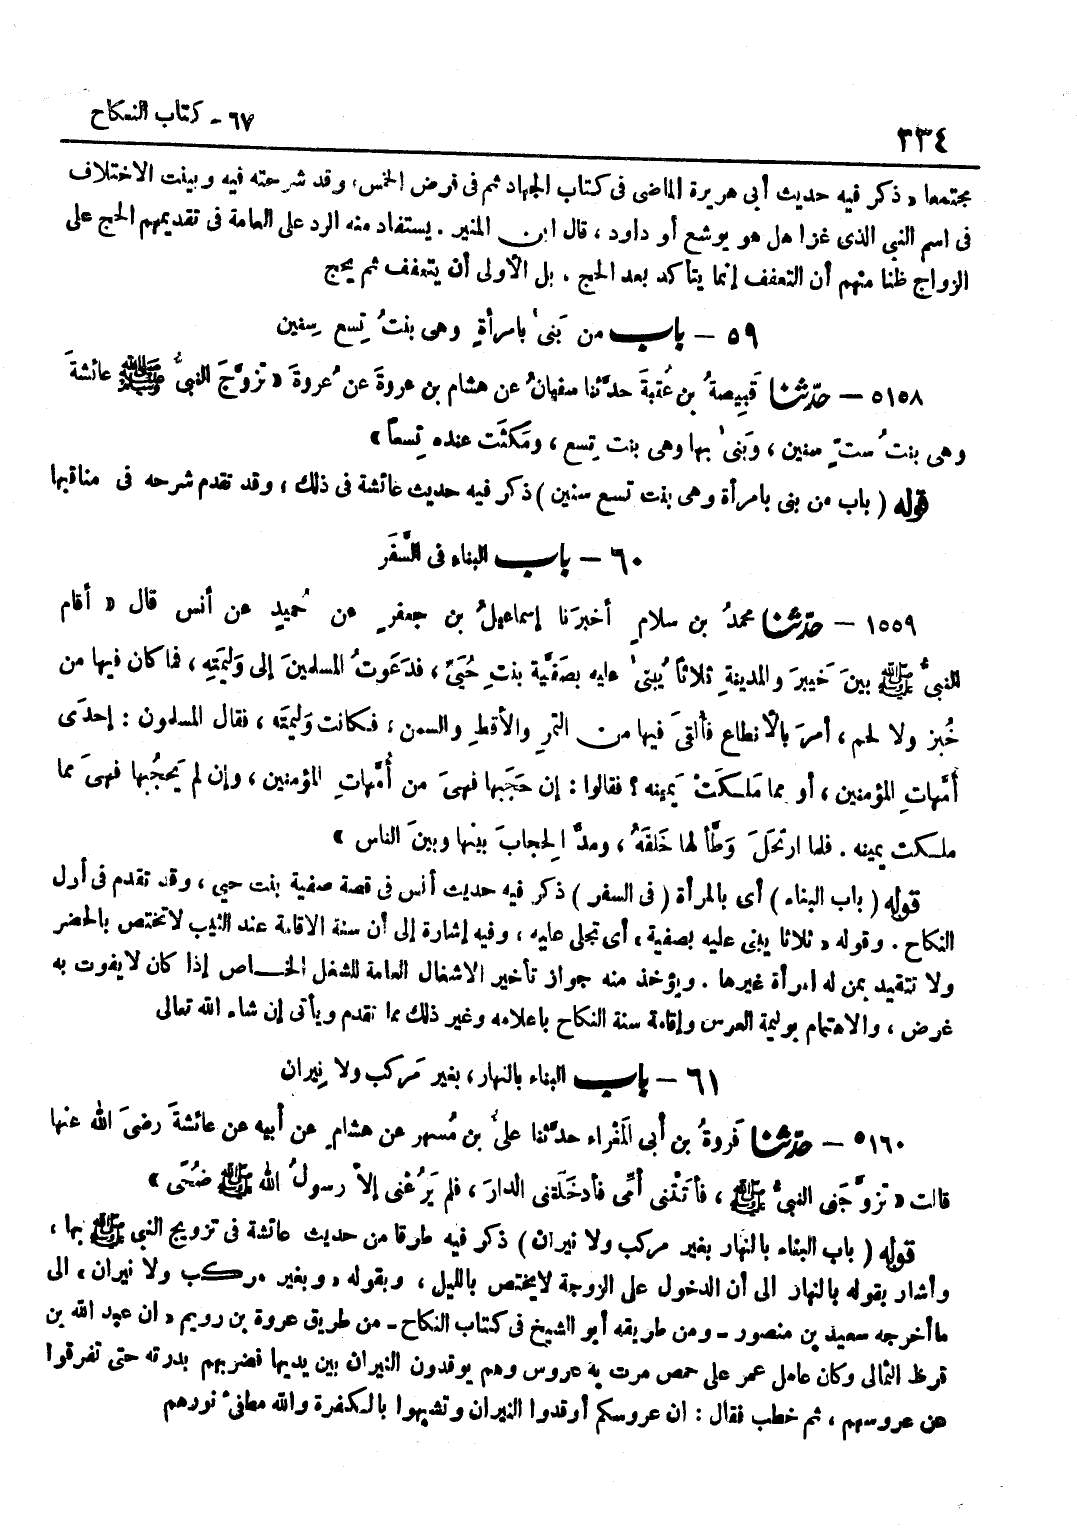 ٦٧ - كتاب النكاح
٢٣٤
مجتمعا « ذكر فيه حديث أبى هريرة الماضى فى كتاب الجهاد ثم فى فرض الخمس، وقد شرحته فيه وبينت الاختلاف
فى اسم النبى الذى غزا هل هو يوشع أو داود ، قال ابن المنير . يستفاد منه الرد على العامة فى تقديمهم الحج على
الزواج ظنا منهم أن التعفف إنما يتأكد بعد الحج . بل الأولى أن يتعفف ثم يحج
٥٩ - باب من بَنىٰ بامرأةٍ وهى بنتُ تِسعِ سِنين
٥١٥٨ - حدّثنا قَبِيصةُ بن عُقبةَ حدَّثنا سفيانُ عن هشام بن عروةَ عن عُروةَ « تزوَّجَ النبىُّ ﷺ عائشةَ
وهى بنتُ ستِّ سنين ، وبَنىٰ بها وهى بنت تِسع ، ومَكثَت عنده تِسعاً »
قوله ( باب من بنى بامرأة وهى بنت تسع سنين ) ذكر فيه حديث عائشة فى ذلك ، وقد تقدم شرحه فى مناقبها
٦٠ - باب البناء فى السَّفَر
١٥٥٩ - حدّثنا محمدُ بن سلامٍ أخبرَنا إسماعيلُ بن جعفرٍ عن حُميدٍ عن أنس قال « أقام
النبىُّ ﷺ بينَ خَيبرَ والمدينةِ ثلاثاً يُبنىٰ عليه بصَفيَّة بنتِ حُيَىٍّ ، فدَعَوتُ المسلمينَ إلى وَليمَتِه ، فما كان فيها من
خُبز ولا لحم ، أمرَ بالأنطاع فألقىَ فيها من التمرِ والأقطِ والسمن ، فكانت وَليمتَه ، فقال المسلمون : إحدَى
أمَّهاتِ المؤمنين ، أو مما مَلكَتْ يَمينه ؟ فقالوا : إن حَجَبها فهىَ من أُمَّهاتِ المؤمنين ، وإن لم يَحجُبها فهىَ مما
ملكت يمينه . فلما ارتحَلَ وَطَّأ لها خَلفَهُ ، ومدَّ الحِجابَ بينها وبينَ الناس »
قوله ( باب البناء ) أى بالمرأة ( فى السفر ) ذكر فيه حديث أنس فى قصة صفية بنت حيي ، وقد تقدم فى أول
النكاح . وقوله « ثلاثا يبنى عليه بصفية ، أى تجلى عليه ، وفيه إشارة إلى أن سنة الاقامة عند الثيب لا تختص بالحضر
ولا تتقيد بمن له امرأة غيرها . ويؤخذ منه جواز تأخير الاشغال العامة للشغل الخاص إذا كان لا يفوت به
غرض ، والاهتمام بوليمة العرس وإقامة سنة النكاح باعلامه وغير ذلك مما تقدم ويأتى إن شاء الله تعالى
٦١ - باب البناء بالنهار ، بغير مَركب ولا نِيران
٥١٦٠ - حدّثنا فَروةُ بن أبى المَغْراء حدَّثنا علىُّ بن مُسهر عن هشامٍ عن أبيه عن عائشةَ رضىَ الله عنها
قالت « تزوَّجَنى النبىُّ ﷺ ، فأتَتْنى أمِّى فأدخَلَتنى الدارَ ، فلم يَرُعْنى إلاّ رسولُ الله ﷺ ضُحًى »
قوله ( باب البناء بالنهار بغير مركب ولا نيران ) ذكر فيه طرفا من حديث عائشة فى تزويج النبى ﷺ بها ،
وأشار بقوله بالنهار الى أن الدخول على الزوجة لا يختص بالليل ، وبقوله « وبغير مركب ولا نيران ، الى
ما أخرجه سعيد بن منصور - ومن طريقه أبو الشيخ فى كتاب النكاح - من طريق عروة بن رويم « ان عبد الله بن
قرظ الثمالى وكان عامل عمر على حمص مرت به عروس وهم يوقدون النيران بين يديها فضربهم بدرته حتى تفرقوا
عن عروسهم ، ثم خطب فقال : ان عروسكم أوقدوا النيران وتشبهوا بالكفرة والله مطفئ نورهم